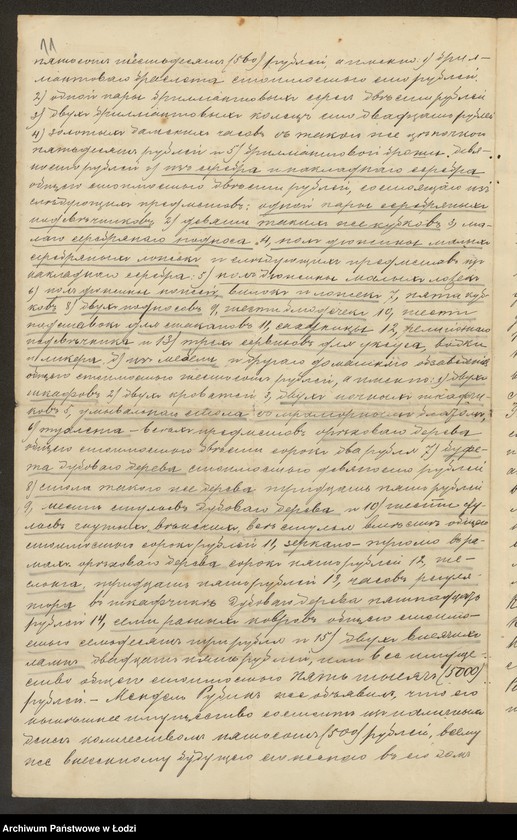 11
пятьсотъ шестьдесятъ (560) рублей, а именно: 1) брил-
лiантоваго браслета стоимостью сто рублей
2) одной пары бриллiантовыхъ серегъ двѣсти рублей
3) двухъ бриллiантовыхъ колецъ сто двадцать рублей
4) золотыхъ дамскихъ часовъ съ такою же цѣпочкой
пятьдесятъ рублей и 5) бриллiантовой брошки девя-
носто рублей в) изъ серебра и накладнаго серебра
общею стоимостью двѣсти рублей, состоящаго изъ
слѣдующихъ предметовъ: одной пары серебрянныхъ
подсвѣчниковъ 2) девяти такихъ же кубковъ 3, ма-
лаго серебрянаго подноса 4, полъ дюжины малыхъ
серебряныхъ ложекъ и слѣдующихъ предметовъ изъ
накладнаго серебра: 5) полъ дюжины малыхъ ложекъ
6) полъ дюжины ножей, вилокъ и ложекъ 7, пяти куб-
ковъ 8) двухъ подносовъ 9, шести 10, шести
подставокъ для стакановъ 11, сахарницы 12,
подсвѣчника и 13) трехъ сервизовъ для уксуса, водки
и ликера, д) изъ мебели и другаго домашняго обзаведенiя
общею стоимостью рублей, а именно: 1) двухъ
шкафовъ 2) двухъ кроватей 3, двухъ ночныхъ шкафчи-
ковъ 5, умывальнаго стола съ мраморною доскою,
6) туалета – всѣхъ предметовъ орѣховаго дерева
общею стоимостью двѣсти сорокъ два рубля 7) буфе-
та дубоваго дерева стоимостью девяносто рублей
8) стола такого же дерева тридцать пять рублей
9, шести стульевъ дубоваго дерева и 10) шести сту-
льевъ гнутыхъ вѣнскихъ, всѣхъ стульевъ вмѣстѣ общею
стоимостью сорокъ рублей 11, зеркало-трюмо въ ра-
махъ орѣховаго дерева сорокъ пять рублей 12,
тридцать пять рублей 13, часовъ регуля-
тора въ шкафчикѣ дубоваго дерева пятнадцать
рублей 14, семи разныхъ ковровъ общею стоимо-
стью семьдесятъ три рубля и 15) двухъ висячихъ
лампъ двадцать пять рублей, или все имуще-
ство общею стоимостью пять тысячъ (5000)
рублей. – Мендель Рубинъ же объявилъ, что его
нынѣшнее имущество состоитъ изъ наличныхъ
денегъ количествомъ пятьсотъ (500) рублей, всему
же внесенному будущею его женою въ его домъ
Archiwum Państwowe w Łodzi